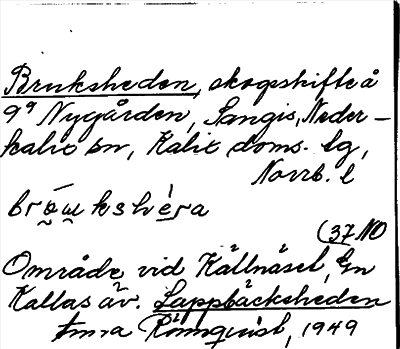 Bruksheden, skogsskifte å
gd Nygården, Sangis, Neder-
kalix sn, Kalix doms. lg,
Norrb. l
(37 NO
Område vid Källnäset, En
Kallas äv. Lappbäcksheden
Rönnquist, 1949